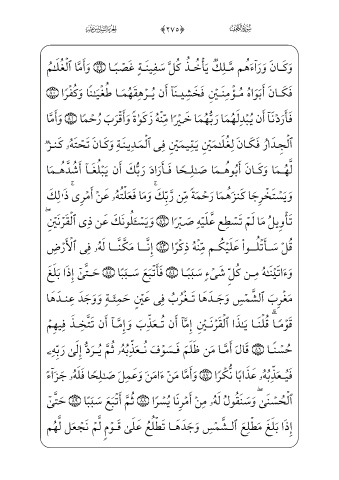 سُورَةُ الكَهْفِ ﴿٢٧٥﴾ الجزء السادس عشر
وَكَانَ وَرَآءَهُم مَّلِكٌ يَأْخُذُ كُلَّ سَفِينَةٍ غَصْبًا ۝٧٩ وَأَمَّا ٱلْغُلَـٰمُ
فَكَانَ أَبَوَاهُ مُؤْمِنَيْنِ فَخَشِينَآ أَن يُرْهِقَهُمَا طُغْيَـٰنًا وَكُفْرًا ۝٨٠
فَأَرَدْنَآ أَن يُبْدِلَهُمَا رَبُّهُمَا خَيْرًا مِّنْهُ زَكَوٰةً وَأَقْرَبَ رُحْمًا ۝٨١ وَأَمَّا
ٱلْجِدَارُ فَكَانَ لِغُلَـٰمَيْنِ يَتِيمَيْنِ فِى ٱلْمَدِينَةِ وَكَانَ تَحْتَهُۥ كَنزٌ
لَّهُمَا وَكَانَ أَبُوهُمَا صَـٰلِحًا فَأَرَادَ رَبُّكَ أَن يَبْلُغَآ أَشُدَّهُمَا
وَيَسْتَخْرِجَا كَنزَهُمَا رَحْمَةً مِّن رَّبِّكَ ۚ وَمَا فَعَلْتُهُۥ عَنْ أَمْرِى ۚ ذَٰلِكَ
تَأْوِيلُ مَا لَمْ تَسْطِع عَّلَيْهِ صَبْرًا ۝٨٢ وَيَسْـَٔلُونَكَ عَن ذِى ٱلْقَرْنَيْنِ ۖ
قُلْ سَأَتْلُوا۟ عَلَيْكُم مِّنْهُ ذِكْرًا ۝٨٣ إِنَّا مَكَّنَّا لَهُۥ فِى ٱلْأَرْضِ
وَءَاتَيْنَـٰهُ مِن كُلِّ شَىْءٍ سَبَبًا ۝٨٤ فَأَتْبَعَ سَبَبًا ۝٨٥ حَتَّىٰٓ إِذَا بَلَغَ
مَغْرِبَ ٱلشَّمْسِ وَجَدَهَا تَغْرُبُ فِى عَيْنٍ حَمِئَةٍ وَوَجَدَ عِندَهَا
قَوْمًا ۗ قُلْنَا يَـٰذَا ٱلْقَرْنَيْنِ إِمَّآ أَن تُعَذِّبَ وَإِمَّآ أَن تَتَّخِذَ فِيهِمْ
حُسْنًا ۝٨٦ قَالَ أَمَّا مَن ظَلَمَ فَسَوْفَ نُعَذِّبُهُۥ ثُمَّ يُرَدُّ إِلَىٰ رَبِّهِۦ
فَيُعَذِّبُهُۥ عَذَابًا نُّكْرًا ۝٨٧ وَأَمَّا مَنْ ءَامَنَ وَعَمِلَ صَـٰلِحًا فَلَهُۥ جَزَآءً
ٱلْحُسْنَىٰ ۖ وَسَنَقُولُ لَهُۥ مِنْ أَمْرِنَا يُسْرًا ۝٨٨ ثُمَّ أَتْبَعَ سَبَبًا ۝٨٩ حَتَّىٰٓ
إِذَا بَلَغَ مَطْلِعَ ٱلشَّمْسِ وَجَدَهَا تَطْلُعُ عَلَىٰ قَوْمٍ لَّمْ نَجْعَل لَّهُم